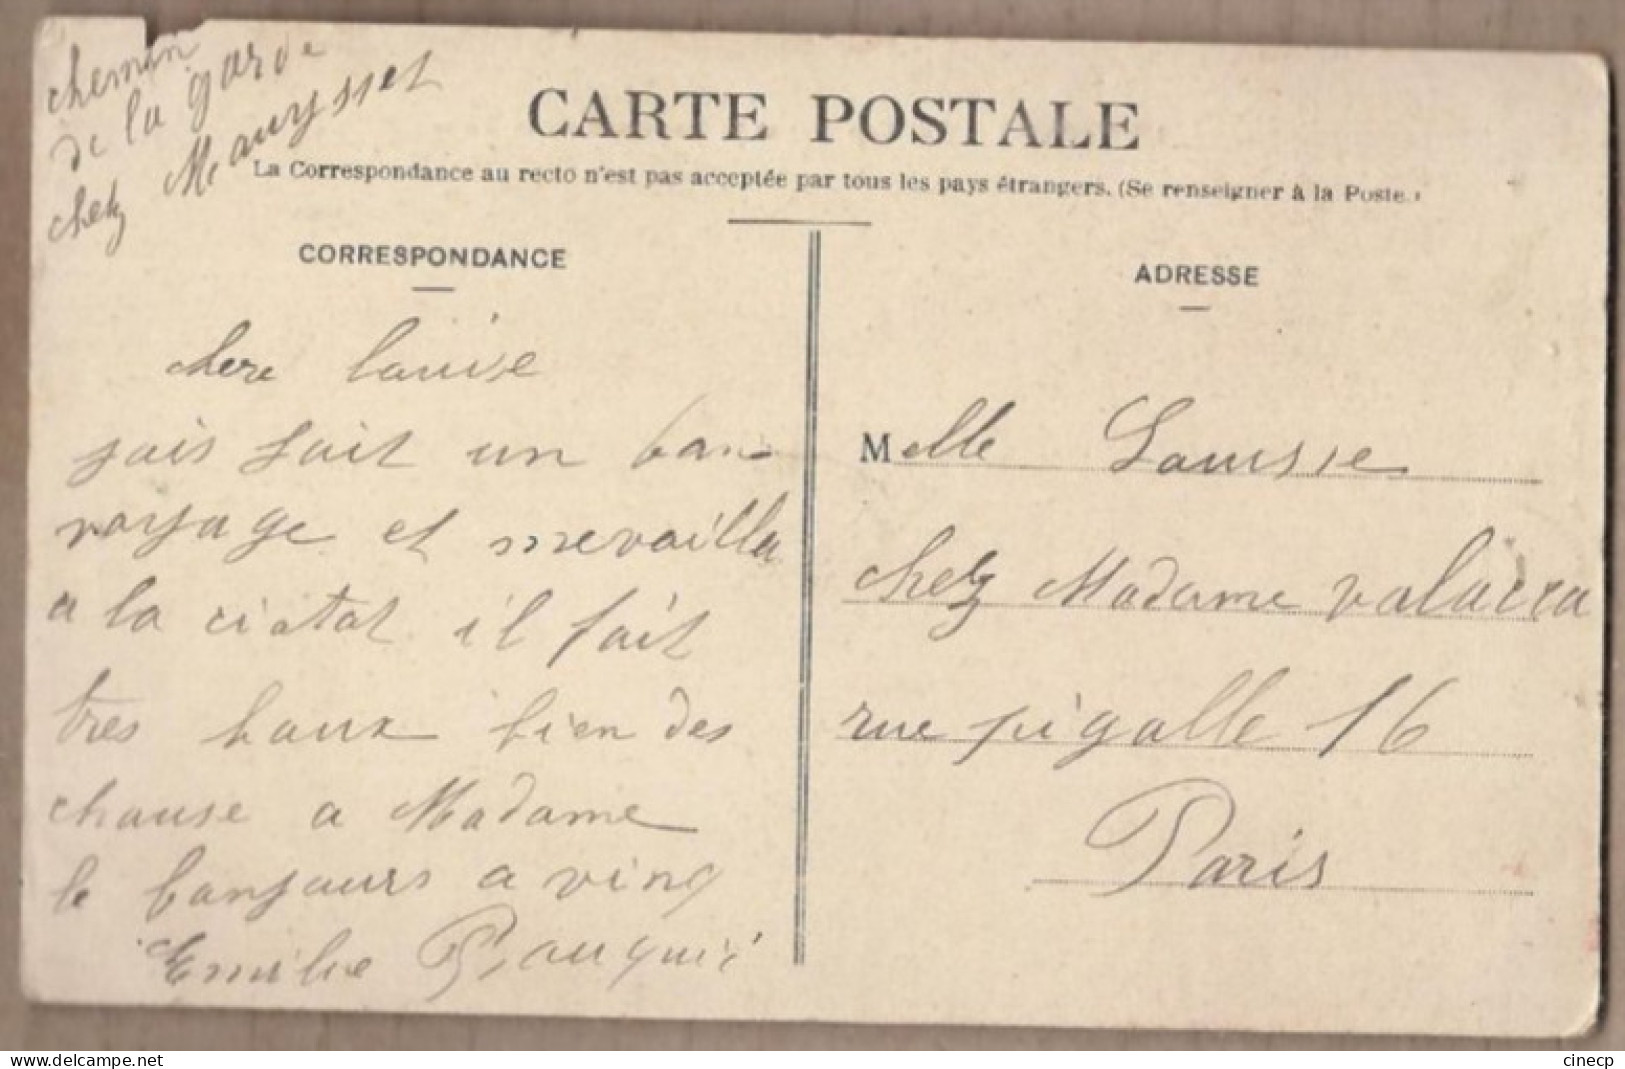 chemin
de la garde
chez Mauysset
CARTE POSTALE
La Correspondance au recto n'est pas acceptée par tous les pays étrangers. (Se renseigner à la Poste.)
CORRESPONDANCE
chere louise
jais fait un bon
voyage et
a la ciotat il fait
tres baux bien des
chause a Madame
le bonjours a
Emilie
ADRESSE
Melle Louisse
chez Madame
rue pigalle 16
Paris
delcampe.net
cinecp